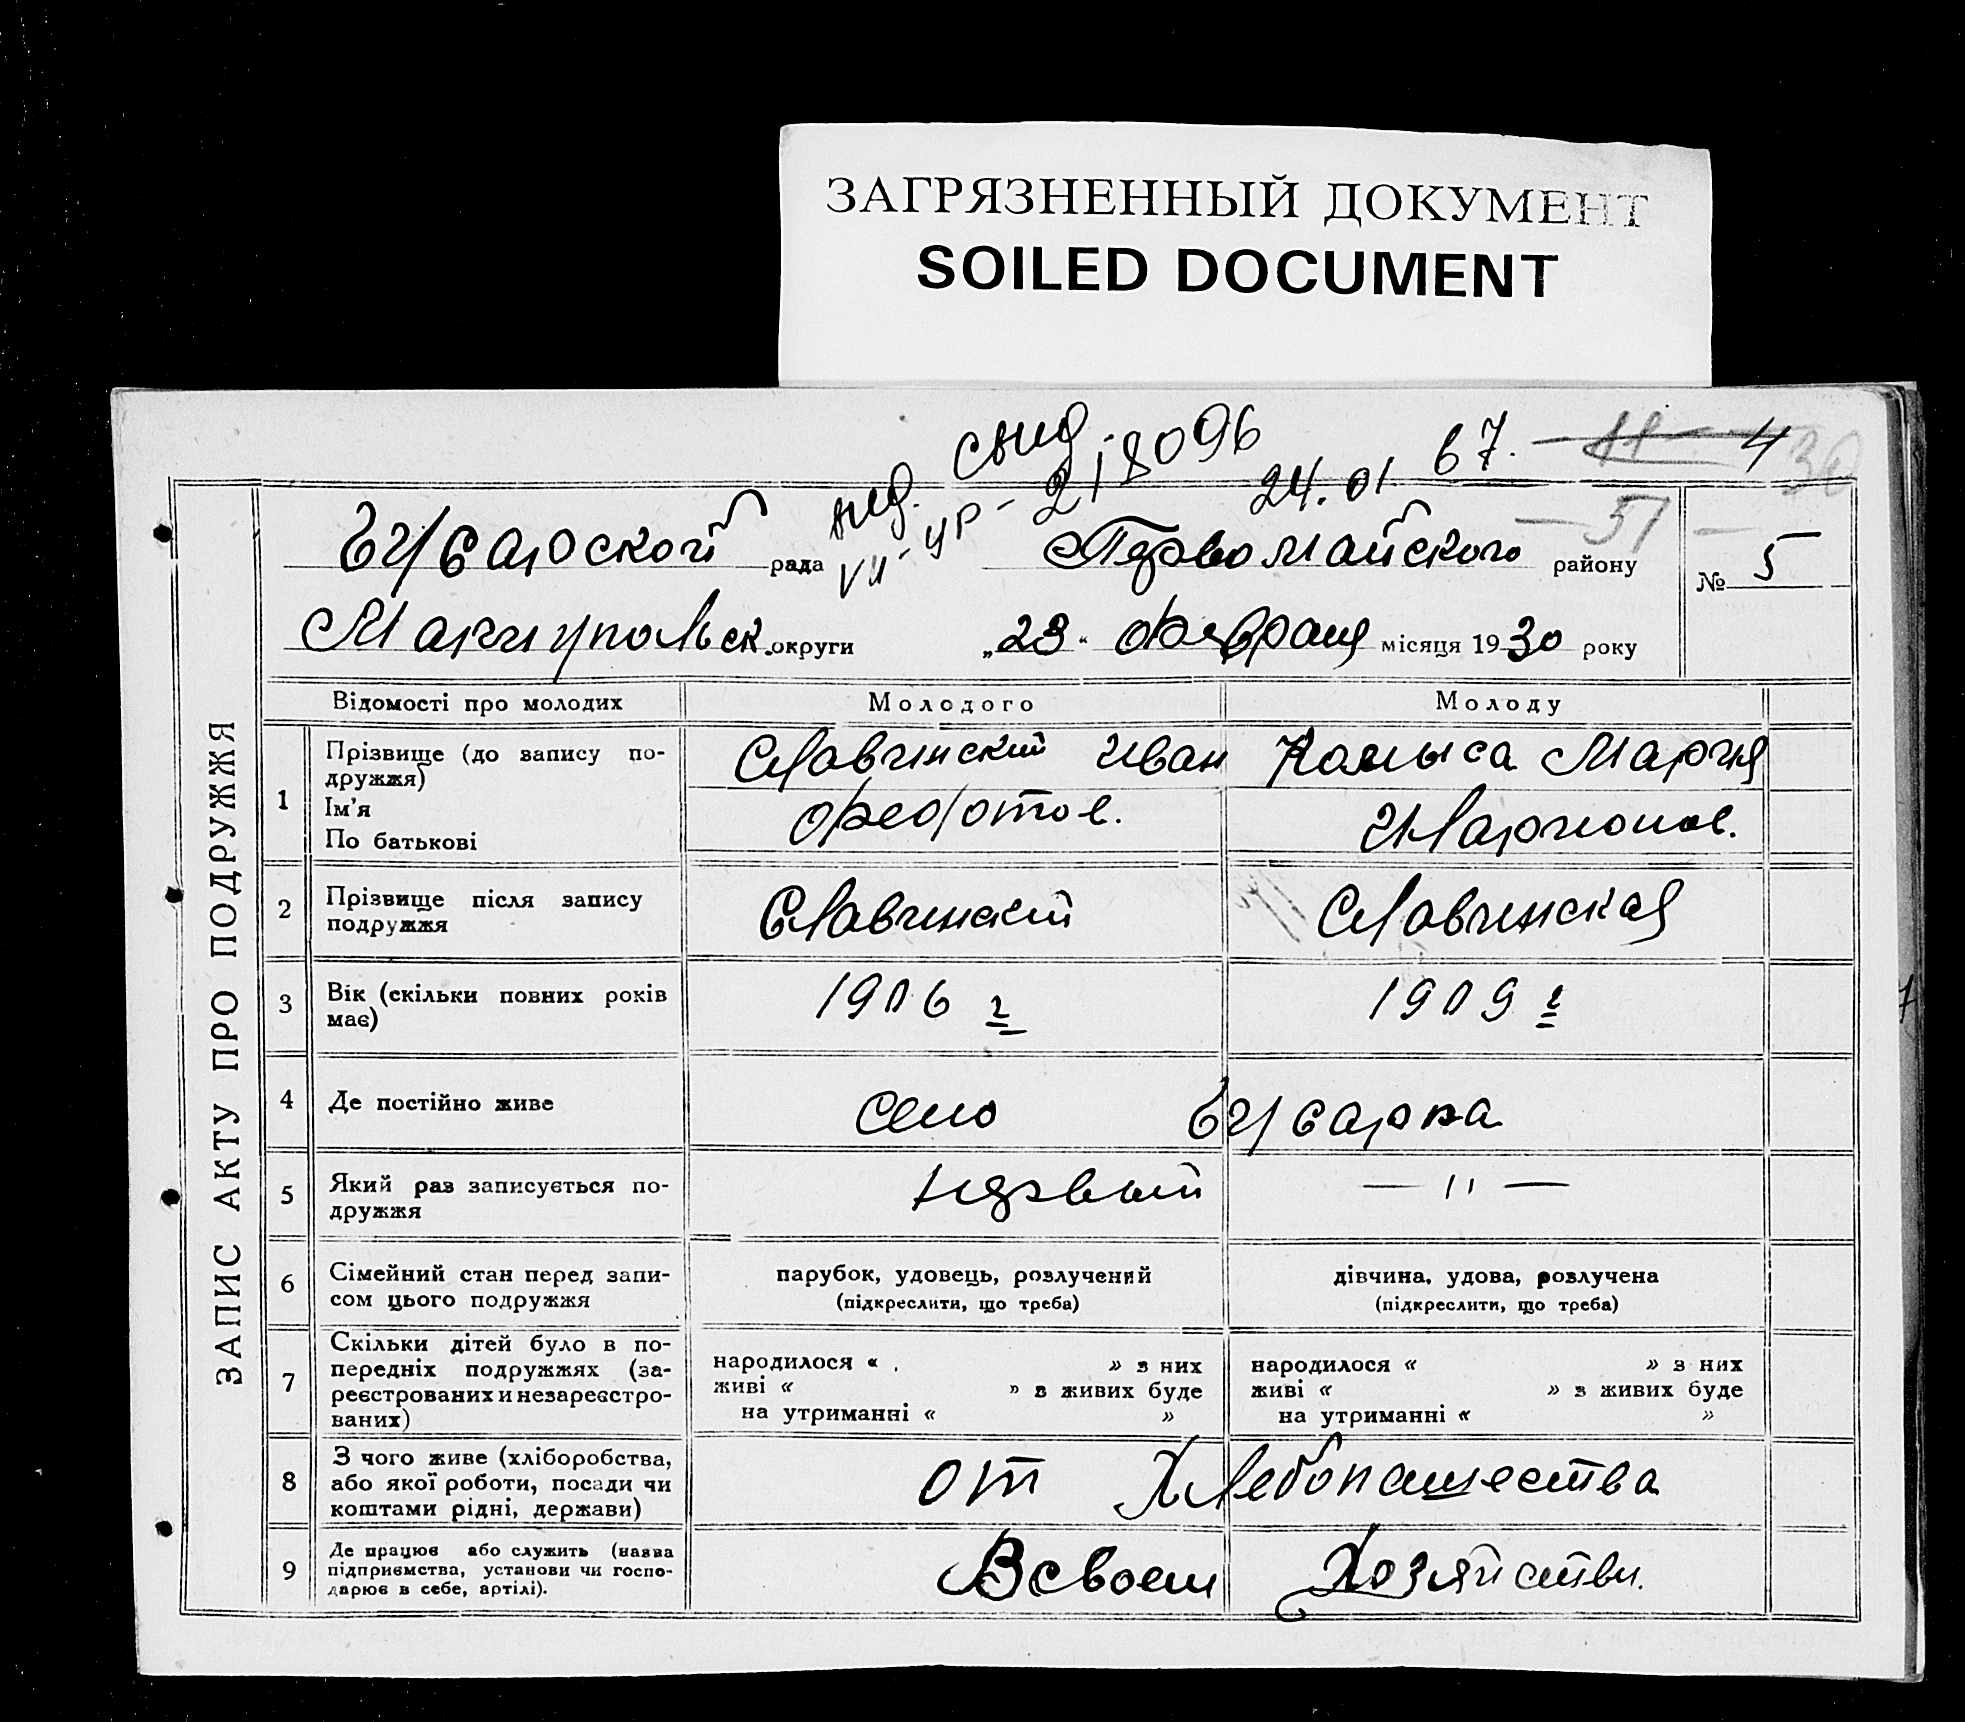 ЗАГРЯЗНЕННЫЙ ДОКУМЕНТ
SOILED DOCUMENT
67. 4
24.01
VII-УР- 218096
51
рада Первомайского району
№ 5
Мариупольск. округи „23“ Февраля місяця 1930 року
ЗАПИС АКТУ ПРО ПОДРУЖЖЯ
Відомості про молодих Молодого Молоду
1 Прізвище (до запису по-
дружжя)
Ім'я
По батькові
Славинский Иван
Федотов.
Мария
Иларионов.
2 Прізвище після запису
подружжя
Славинский Славинская
3 Вік (скільки повних років
має)
1906 г 1909 г
4 Де постійно живе село
5 Який раз записується по-
дружжя
первый — " —
6 Сімейний стан перед запи-
сом цього подружжя
парубок, удовець, розлучений
(підкреслити, що треба)
дівчина, удова, розлучена
(підкреслити, що треба)
7 Скільки дітей було в по-
передніх подружжях (за-
реєстрованих и незареєстро-
ваних)
народилося « » з них
живі « » з живих буде
на утриманні « »
народилося « » з них
живі « » з живих буде
на утриманні « »
8 З чого живе (хліборобства,
або якої роботи, посади чи
коштами рідні, держави)
от Хлебопашества
9 Де працює або служить (назва
підприємства, установи чи госпо-
дарює в себе, артілі).
В своем Хозяйстви.